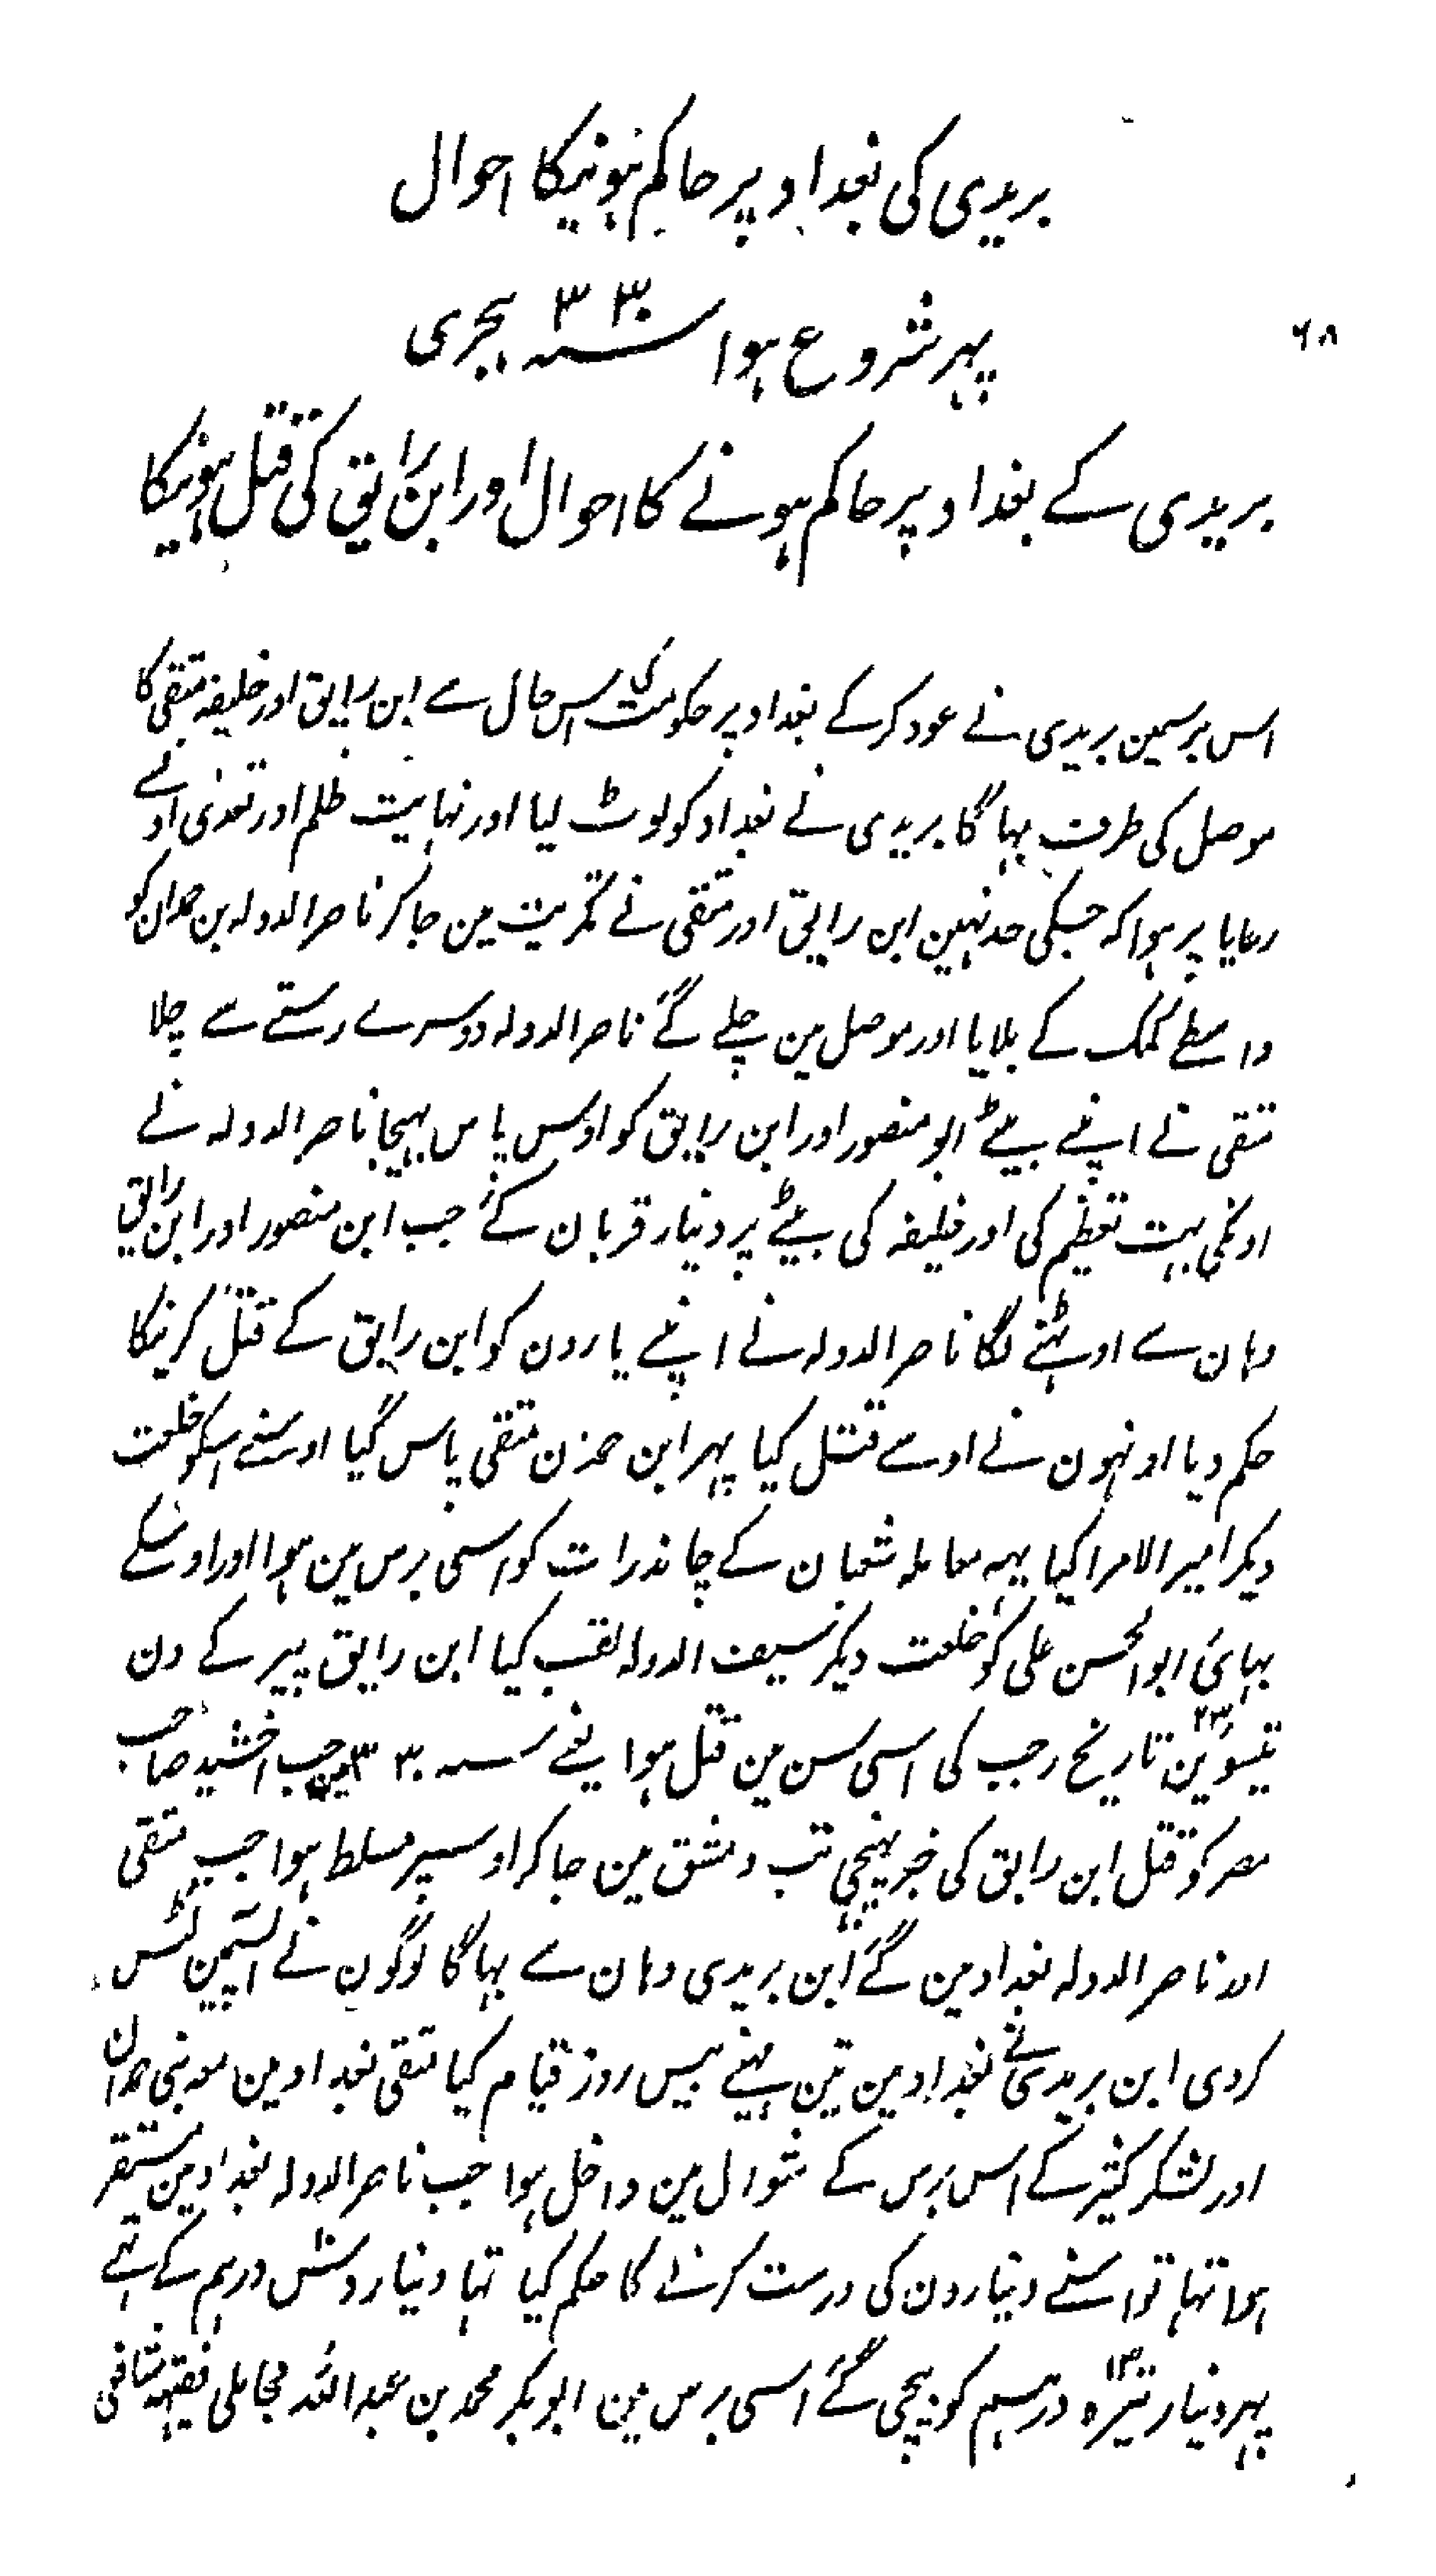 بریدی کی بغداد پر حاکم ہونیکا احوال
۶۸
پہر شروع ہوا سنہ ۳۳۰ ہجری
بریدی کے بغداد پر حاکم ہونے کا احوال اور ابن رایق کی قتل ہونیکا
اس برسمین بریدی نے عود کرکے بغداد پر حکومت کی اس حال سے ابن رایق اور خلیفہ متقی کا
موصل کی طرف بہاگا بریدی نے بغداد کو لوٹ لیا اور نہایت ظلم اور تعدی اوسنے
رعایا پر ہوا کہ جسکی حد نہین ابن رایق اور متقی نے تکریت مین جا کر ناصر الدولہ بن حمدان کو
واسطے کمک کے بلایا اور موصل مین چلے گئے ناصر الدولہ دوسرے رستے سے چلا
متقی نے اپنے بیٹے ابو منصور اور ابن رایق کو اوس پاس بہیجا ناصر الدولہ نے
اونکی بہت تعظیم کی اور خلیفہ کی بیٹے پر دینار قربان کئے جب ابن منصور اور ابن رایق
وہان سے اوٹہنے لگا ناصر الدولہ نے اپنے یارون کو ابن رایق کے قتل کرنیکا
حکم دیا اونہون نے اوسے قتل کیا پہر ابن حمزن متقی پاس گیا اوسنے اسکو خلعت
دیکر امیر الامرا کیا یہہ معاملہ شعبان کے چاندرات کو اسی برس مین ہوا اور اوسکے
بہائی ابو الحسن علی کو خلعت دیکر سیف الدولہ لقب کیا ابن رایق پیر کے دن
تیئسوین ۲۳ تاریخ رجب کی اسی سن مین قتل ہوا یعنے سنہ ۳۳۰ مین جب اخشید صاحب
مصر کو قتل ابن رایق کی خبر پہنچی تب دمشق مین جا کر اوسپر مسلط ہوا جب متقی
اور ناصر الدولہ بغداد مین گئے ابن بریدی وہان سے بہاگا لوگون نے آپسمین لٹس
کردی ابن بریدی نے بغداد مین تین مہینے بیس روز قیام کیا متقی بغداد مین معہ بنی حمدان
اور لشکر کثیر کے اس برس کے شوال مین داخل ہوا جب ناصر الدولہ بغداد مین مستقر
ہوا تہا تو اسنے دینارون کی درست کرنے کا حکم کیا تہا دینار دسش درہم کے تہے
پہر دینار تیرہ ۱۳ درہم کو بیچی گئے اسی برس مین ابو بکر محمد بن عبد اللہ محاملی فقیہہ شافعی